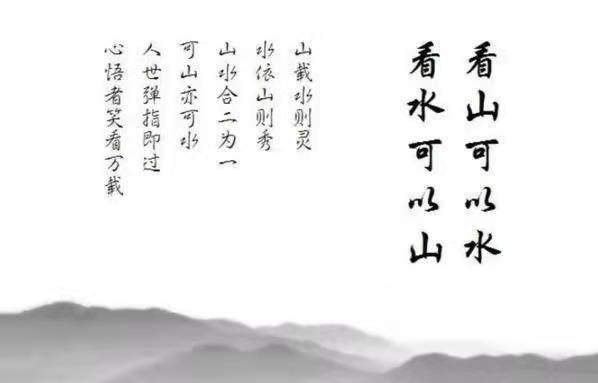 看山可以水
看水可以山
山载水则灵
水依山则秀
山水合二为一
可山亦可水
人世弹指即过
心悟者笑看万载